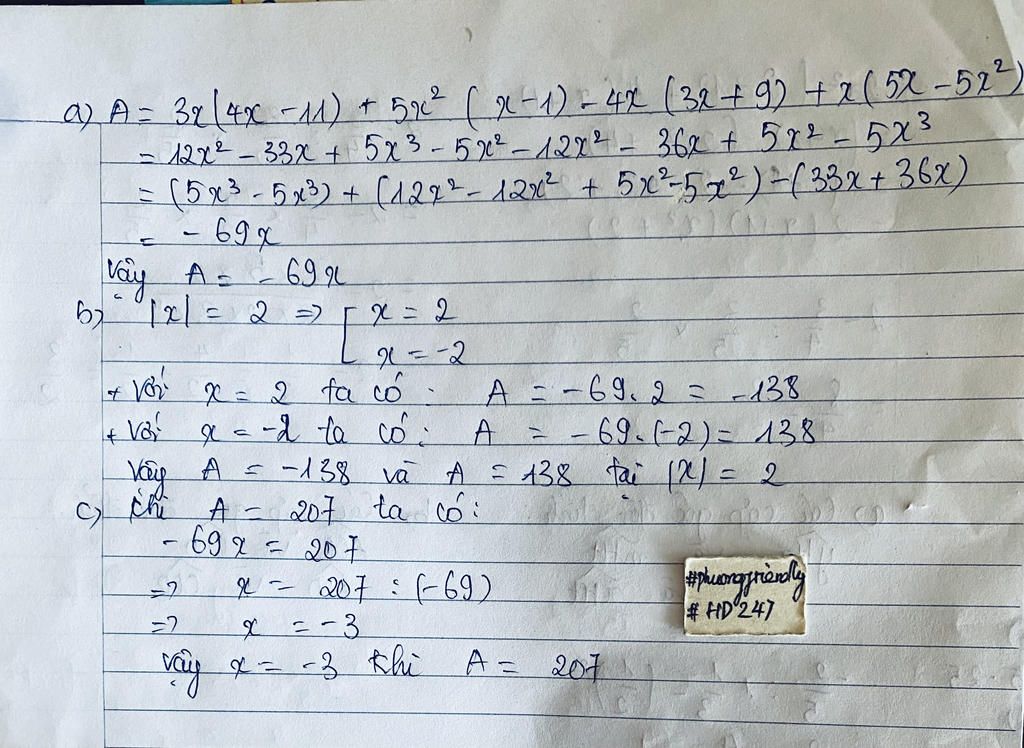 a) A = 3x(4x - 11) + 5x² (x - 1) - 4x (3x + 9) + x(5x - 5x²)
= 12x² - 33x + 5x³ - 5x² - 12x² - 36x + 5x² - 5x³
= (5x³ - 5x³) + (12x² - 12x² + 5x² - 5x²) - (33x + 36x)
= - 69x
Vậy A = - 69x
b) |x| = 2 => [ x = 2
x = -2
+ Với x = 2 ta có : A = -69.2 = -138
+ Với x = -2 ta có : A = -69.(-2) = 138
Vậy A = -138 và A = 138 tại |x| = 2
c) Khi A = 207 ta có :
- 69x = 207
=> x = 207 : (-69)
=> x = -3
Vậy x = -3 khi A = 207
#phuongfriendly
# HD247